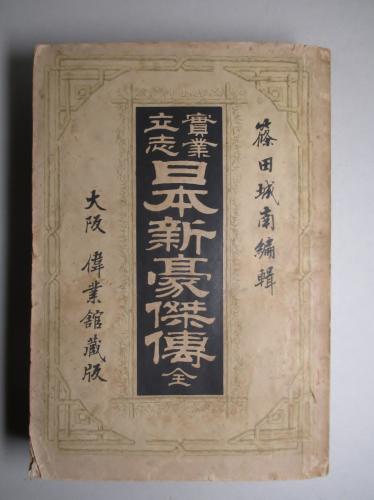 篠田城南編輯
實業
立志
日本新豪傑傳全
大阪 偉業館藏版